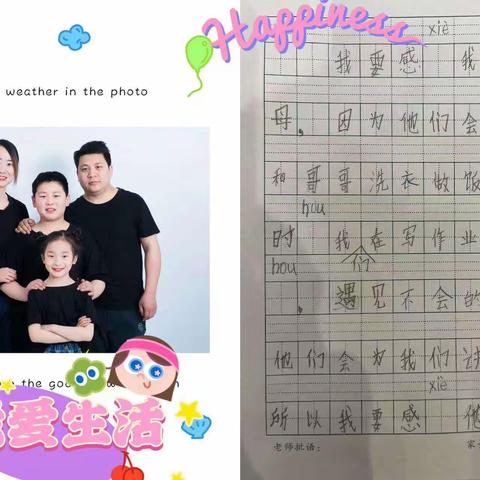 Happiness
weather in the photo
the goo
爱生活
xiè
我要感 我
母。因为他们会
和哥哥洗衣做饭
hou
时 我在写作业
hou 们
。遇见不会的
他们会为我们
xiè
所以我要感 他
老师批语：